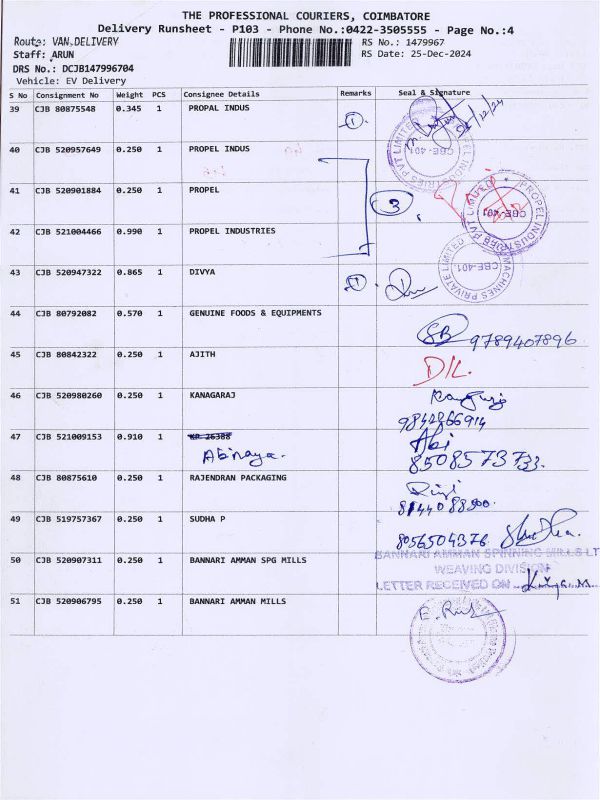 THE PROFESSIONAL COURIERS, COIMBATORE
Delivery Runsheet - P103 - Phone No.:0422-3505555 - Page No.:4
Route: VAN.DELIVERY RS No.: 1479967
Staff: ARUN RS Date: 25-Dec-2024
DRS No.: DCJB147996704
Vehicle: EV Delivery
S No Consignment No Weight PCS Consignee Details Remarks Seal & Signature
39 CJB 80875548 0.345 1 PROPAL INDUS 1
40 CJB 520957649 0.250 1 PROPEL INDUS
41 CJB 520901884 0.250 1 PROPEL 3
42 CJB 521004466 0.990 1 PROPEL INDUSTRIES
43 CJB 520947322 0.865 1 DIVYA 1
44 CJB 80792082 0.570 1 GENUINE FOODS & EQUIPMENTS
SB 9789407896
45 CJB 80842322 0.250 1 AJITH D/L.
46 CJB 520980260 0.250 1 KANAGARAJ
9842266914
47 CJB 521009153 0.910 1 KR 26388 Abi
Abinaya. 8508573733.
48 CJB 80875610 0.250 1 RAJENDRAN PACKAGING
49 CJB 519757367 0.250 1 SUDHA P
8056504376
50 CJB 520907311 0.250 1 BANNARI AMMAN SPG MILLS
BANNARI AMMAN SPINNING MILLS LT
WEAVING DIVISION
LETTER RECEIVED ON
51 CJB 520906795 0.250 1 BANNARI AMMAN MILLS
PROPEL INDUSTRIES PVT LIMITED
CBE-401.
MACHINES PRIVATE LIMITED
CBE-401.